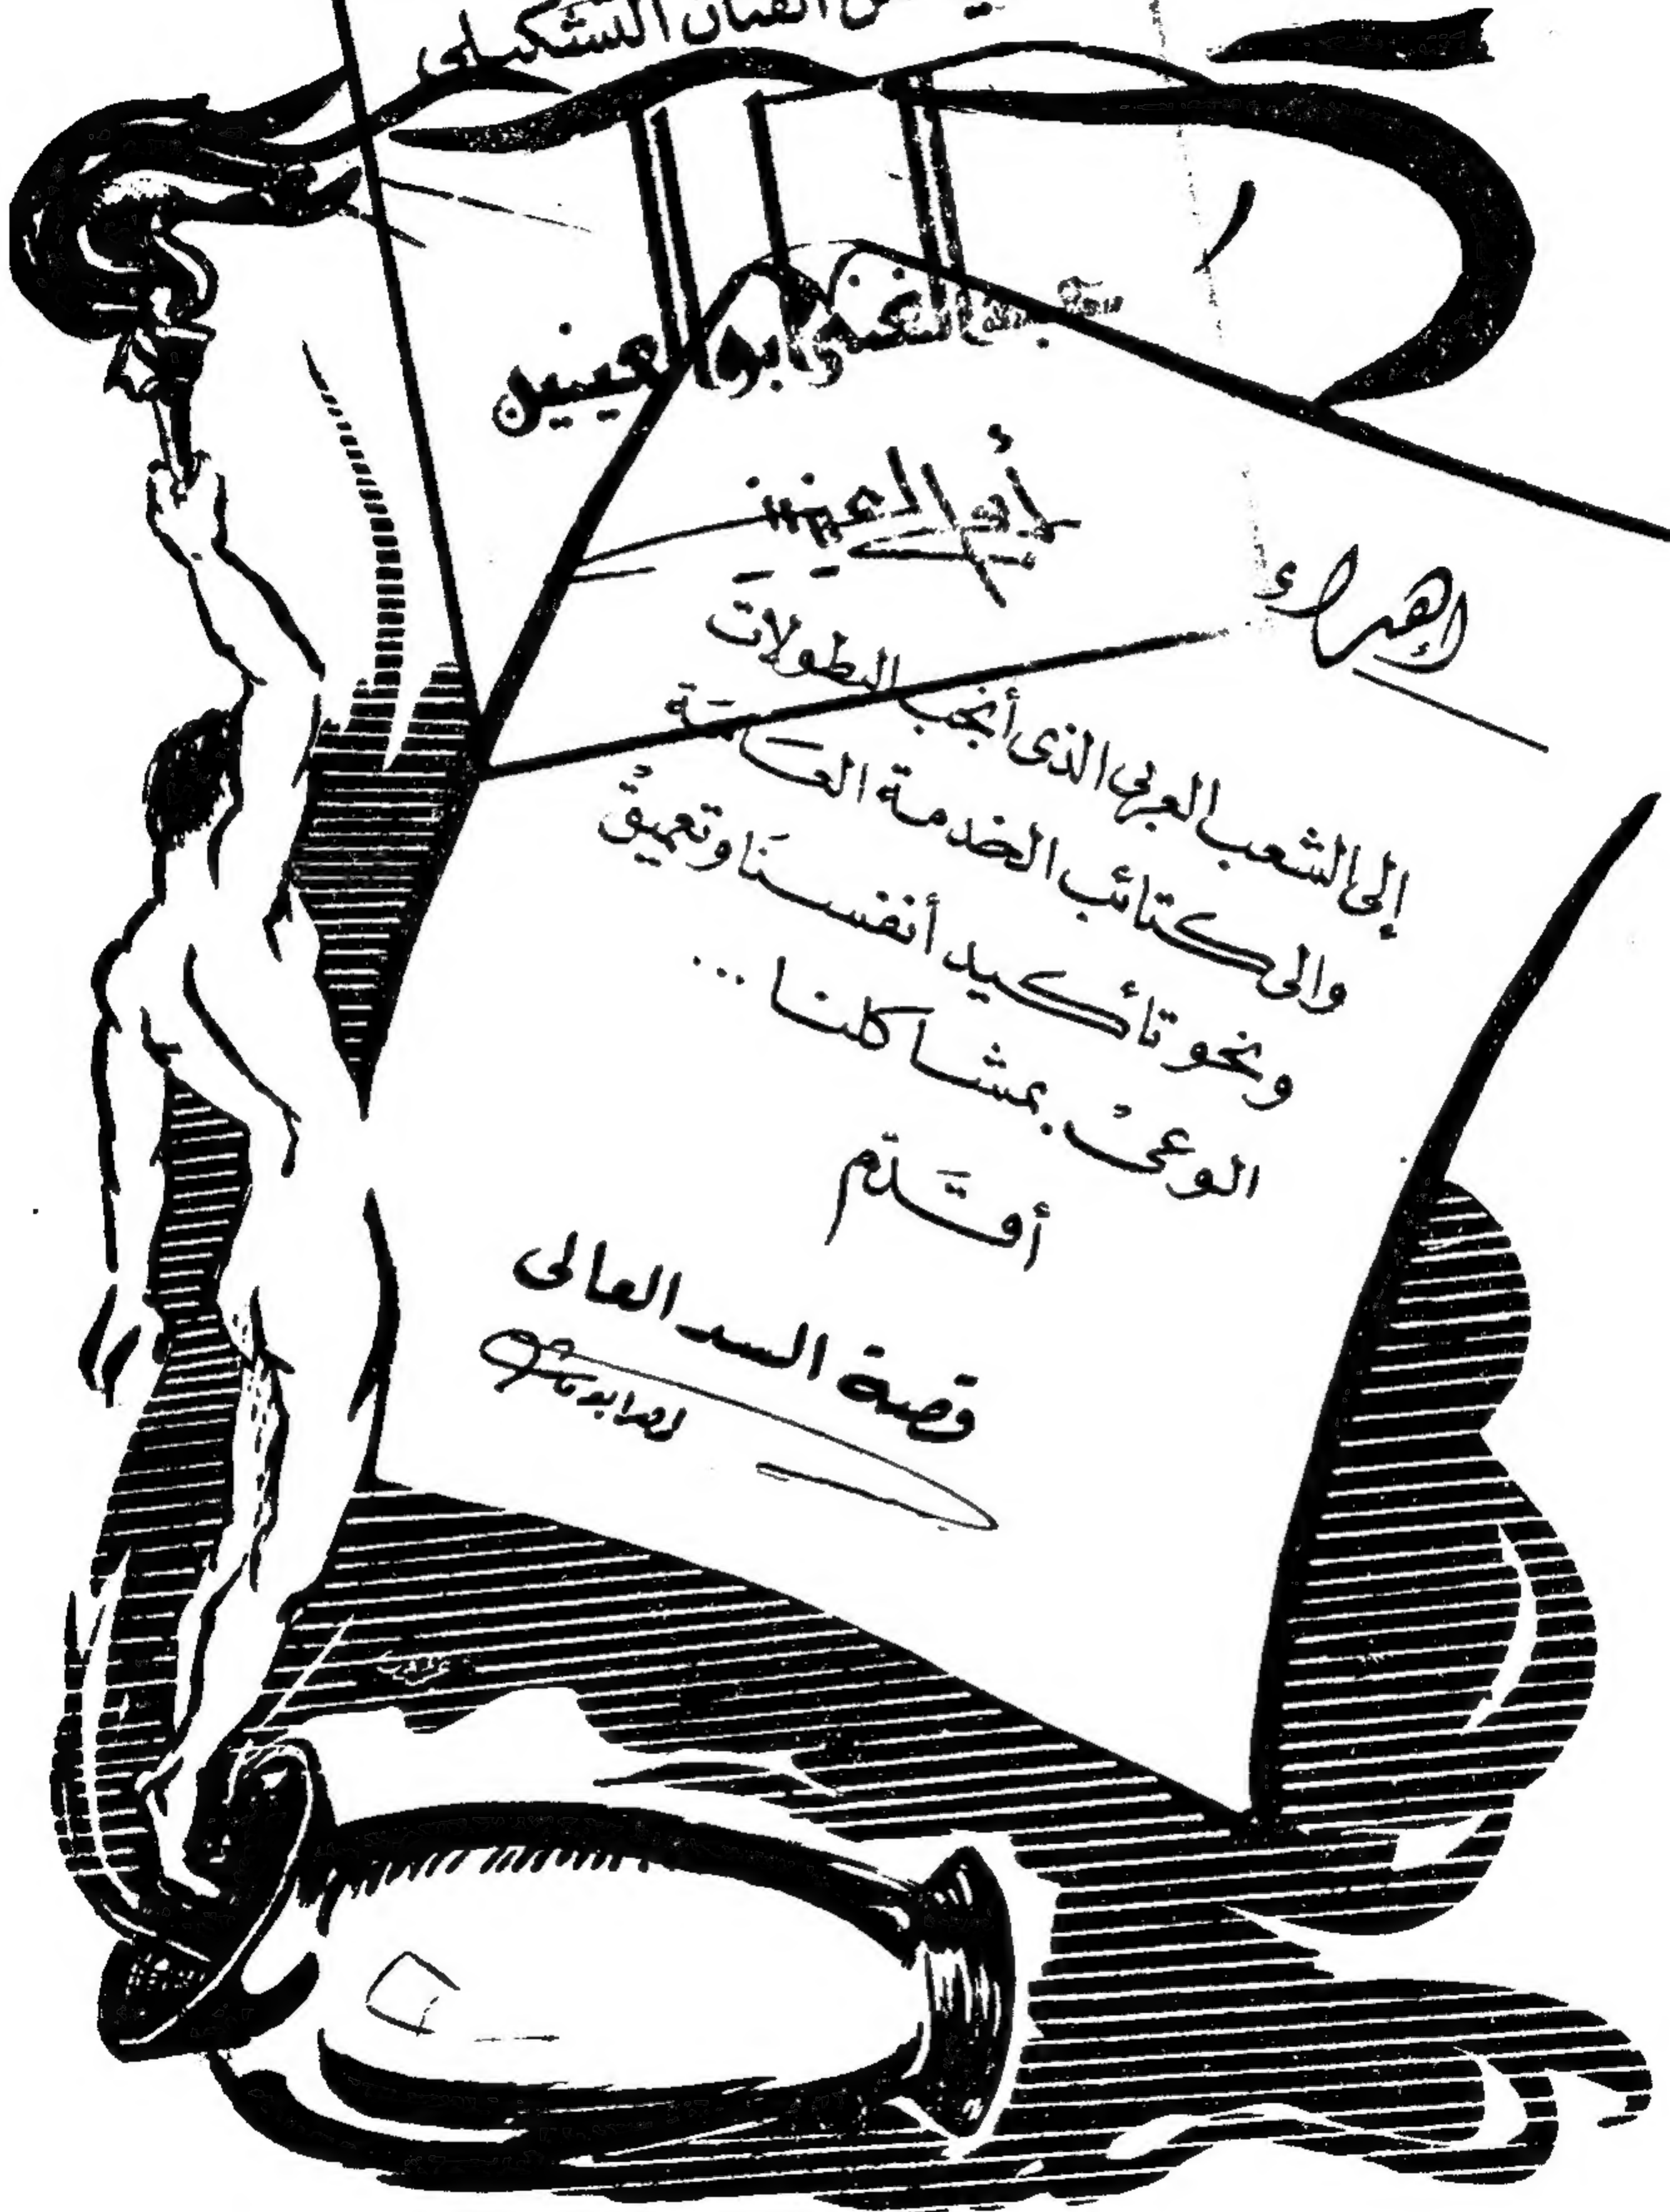 الفنان التشكيلى
عبد الغنى أبو العينين
أبو العينين
إهداء
إلى الشعب العربى الذى أنجب البطولات
والى كتائب الخدمة العامة
ونحو تأكيد أنفسنا وتعميق
الوعى بمشاكلنا ...
أقدم
قصة السد العالى